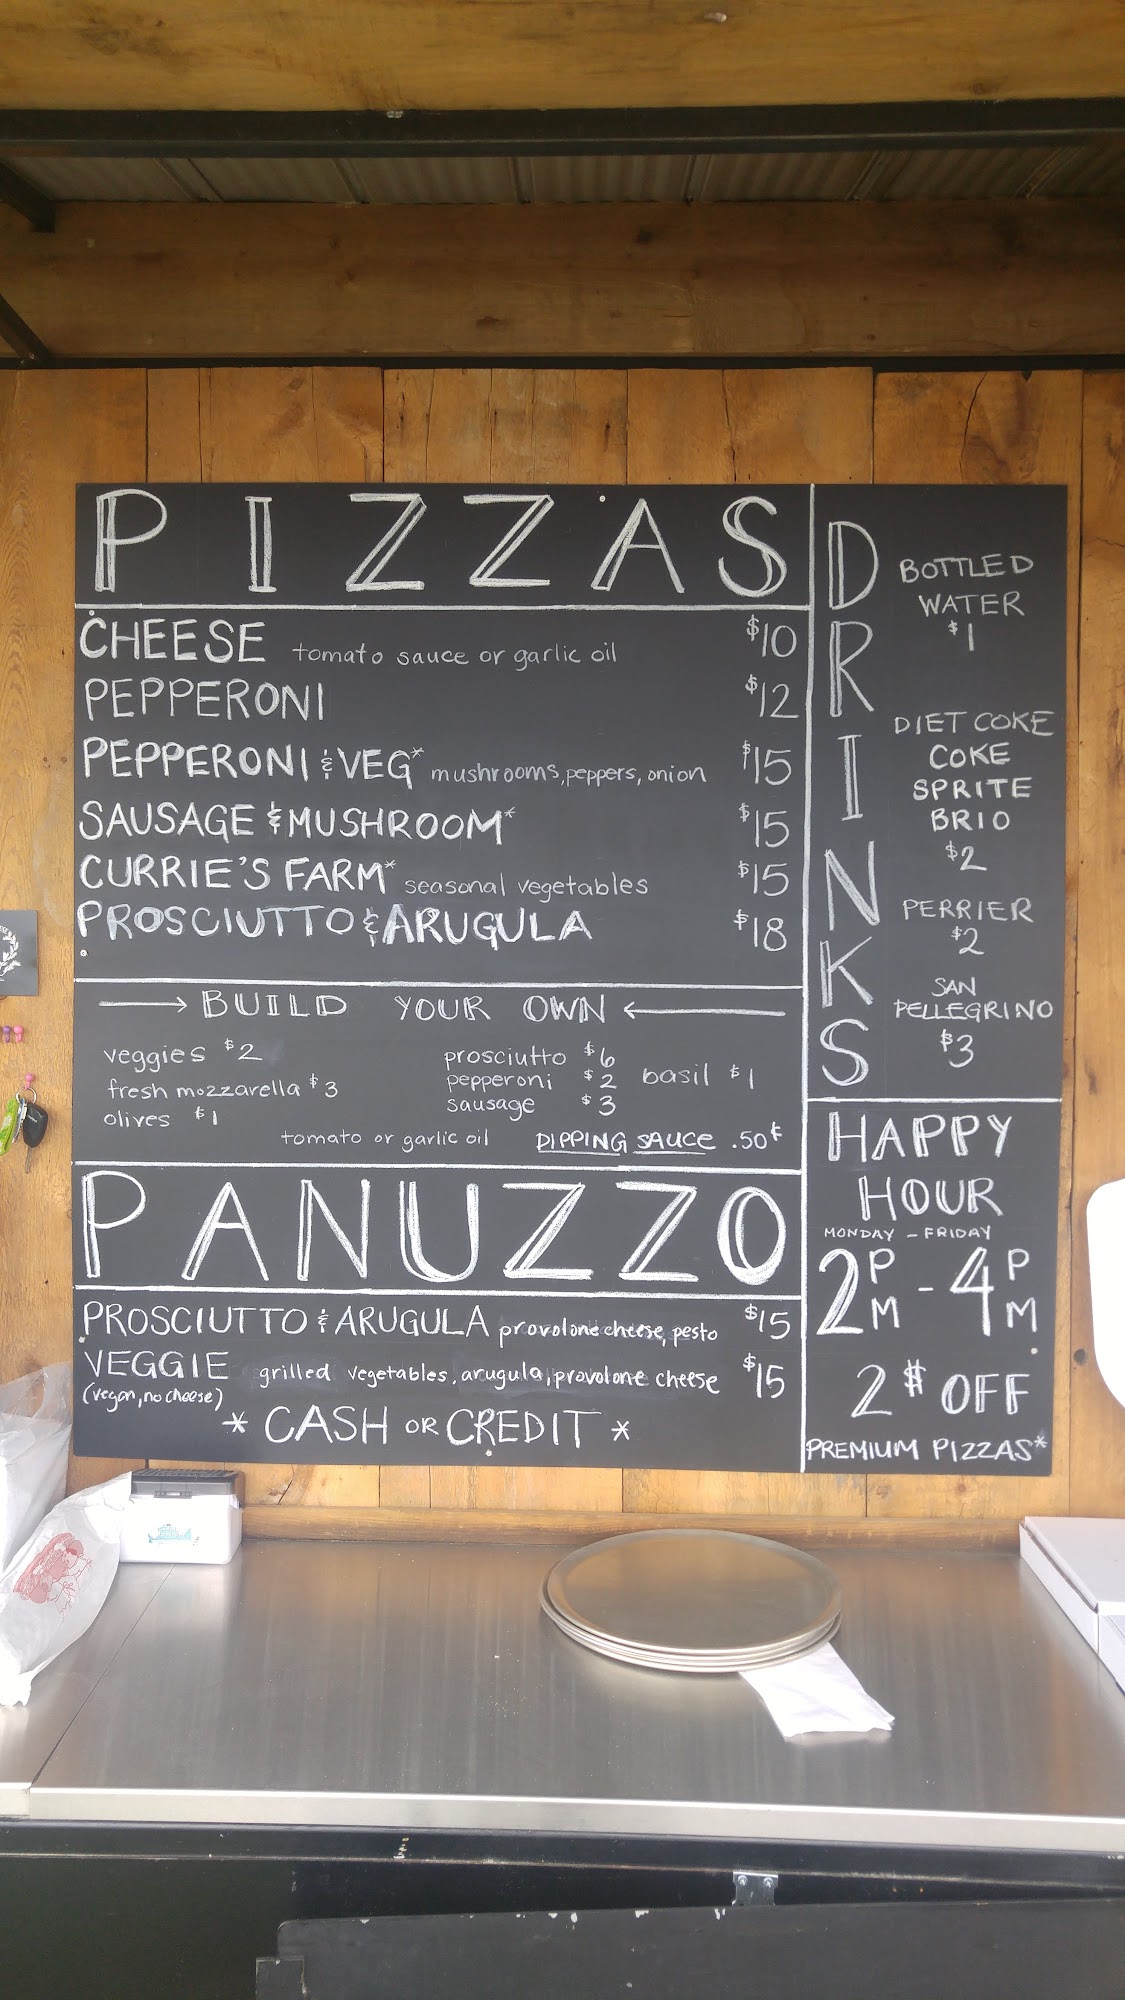 PIZZAS
CHEESE tomato sauce or garlic oil $10
PEPPERONI $12
PEPPERONI & VEG* mushrooms, peppers, onion $15
SAUSAGE & MUSHROOM* $15
CURRIE'S FARM* seasonal vegetables $15
PROSCIUTTO & ARUGULA $18
BUILD YOUR OWN
veggies $2
fresh mozzarella $3
olives $1
prosciutto $6
pepperoni $2
sausage $3
basil $1
tomato or garlic oil DIPPING SAUCE .50¢
PANUZZO
PROSCIUTTO & ARUGULA provolone cheese, pesto $15
VEGGIE grilled vegetables, arugula, provolone cheese $15
(vegan, no cheese)
* CASH OR CREDIT *
DRINKS
BOTTLED
WATER
$1
DIET COKE
COKE
SPRITE
BRIO
$2
PERRIER
$2
SAN
PELLEGRINO
$3
HAPPY
HOUR
MONDAY - FRIDAY
2PM - 4PM
2$ OFF
PREMIUM PIZZAS*